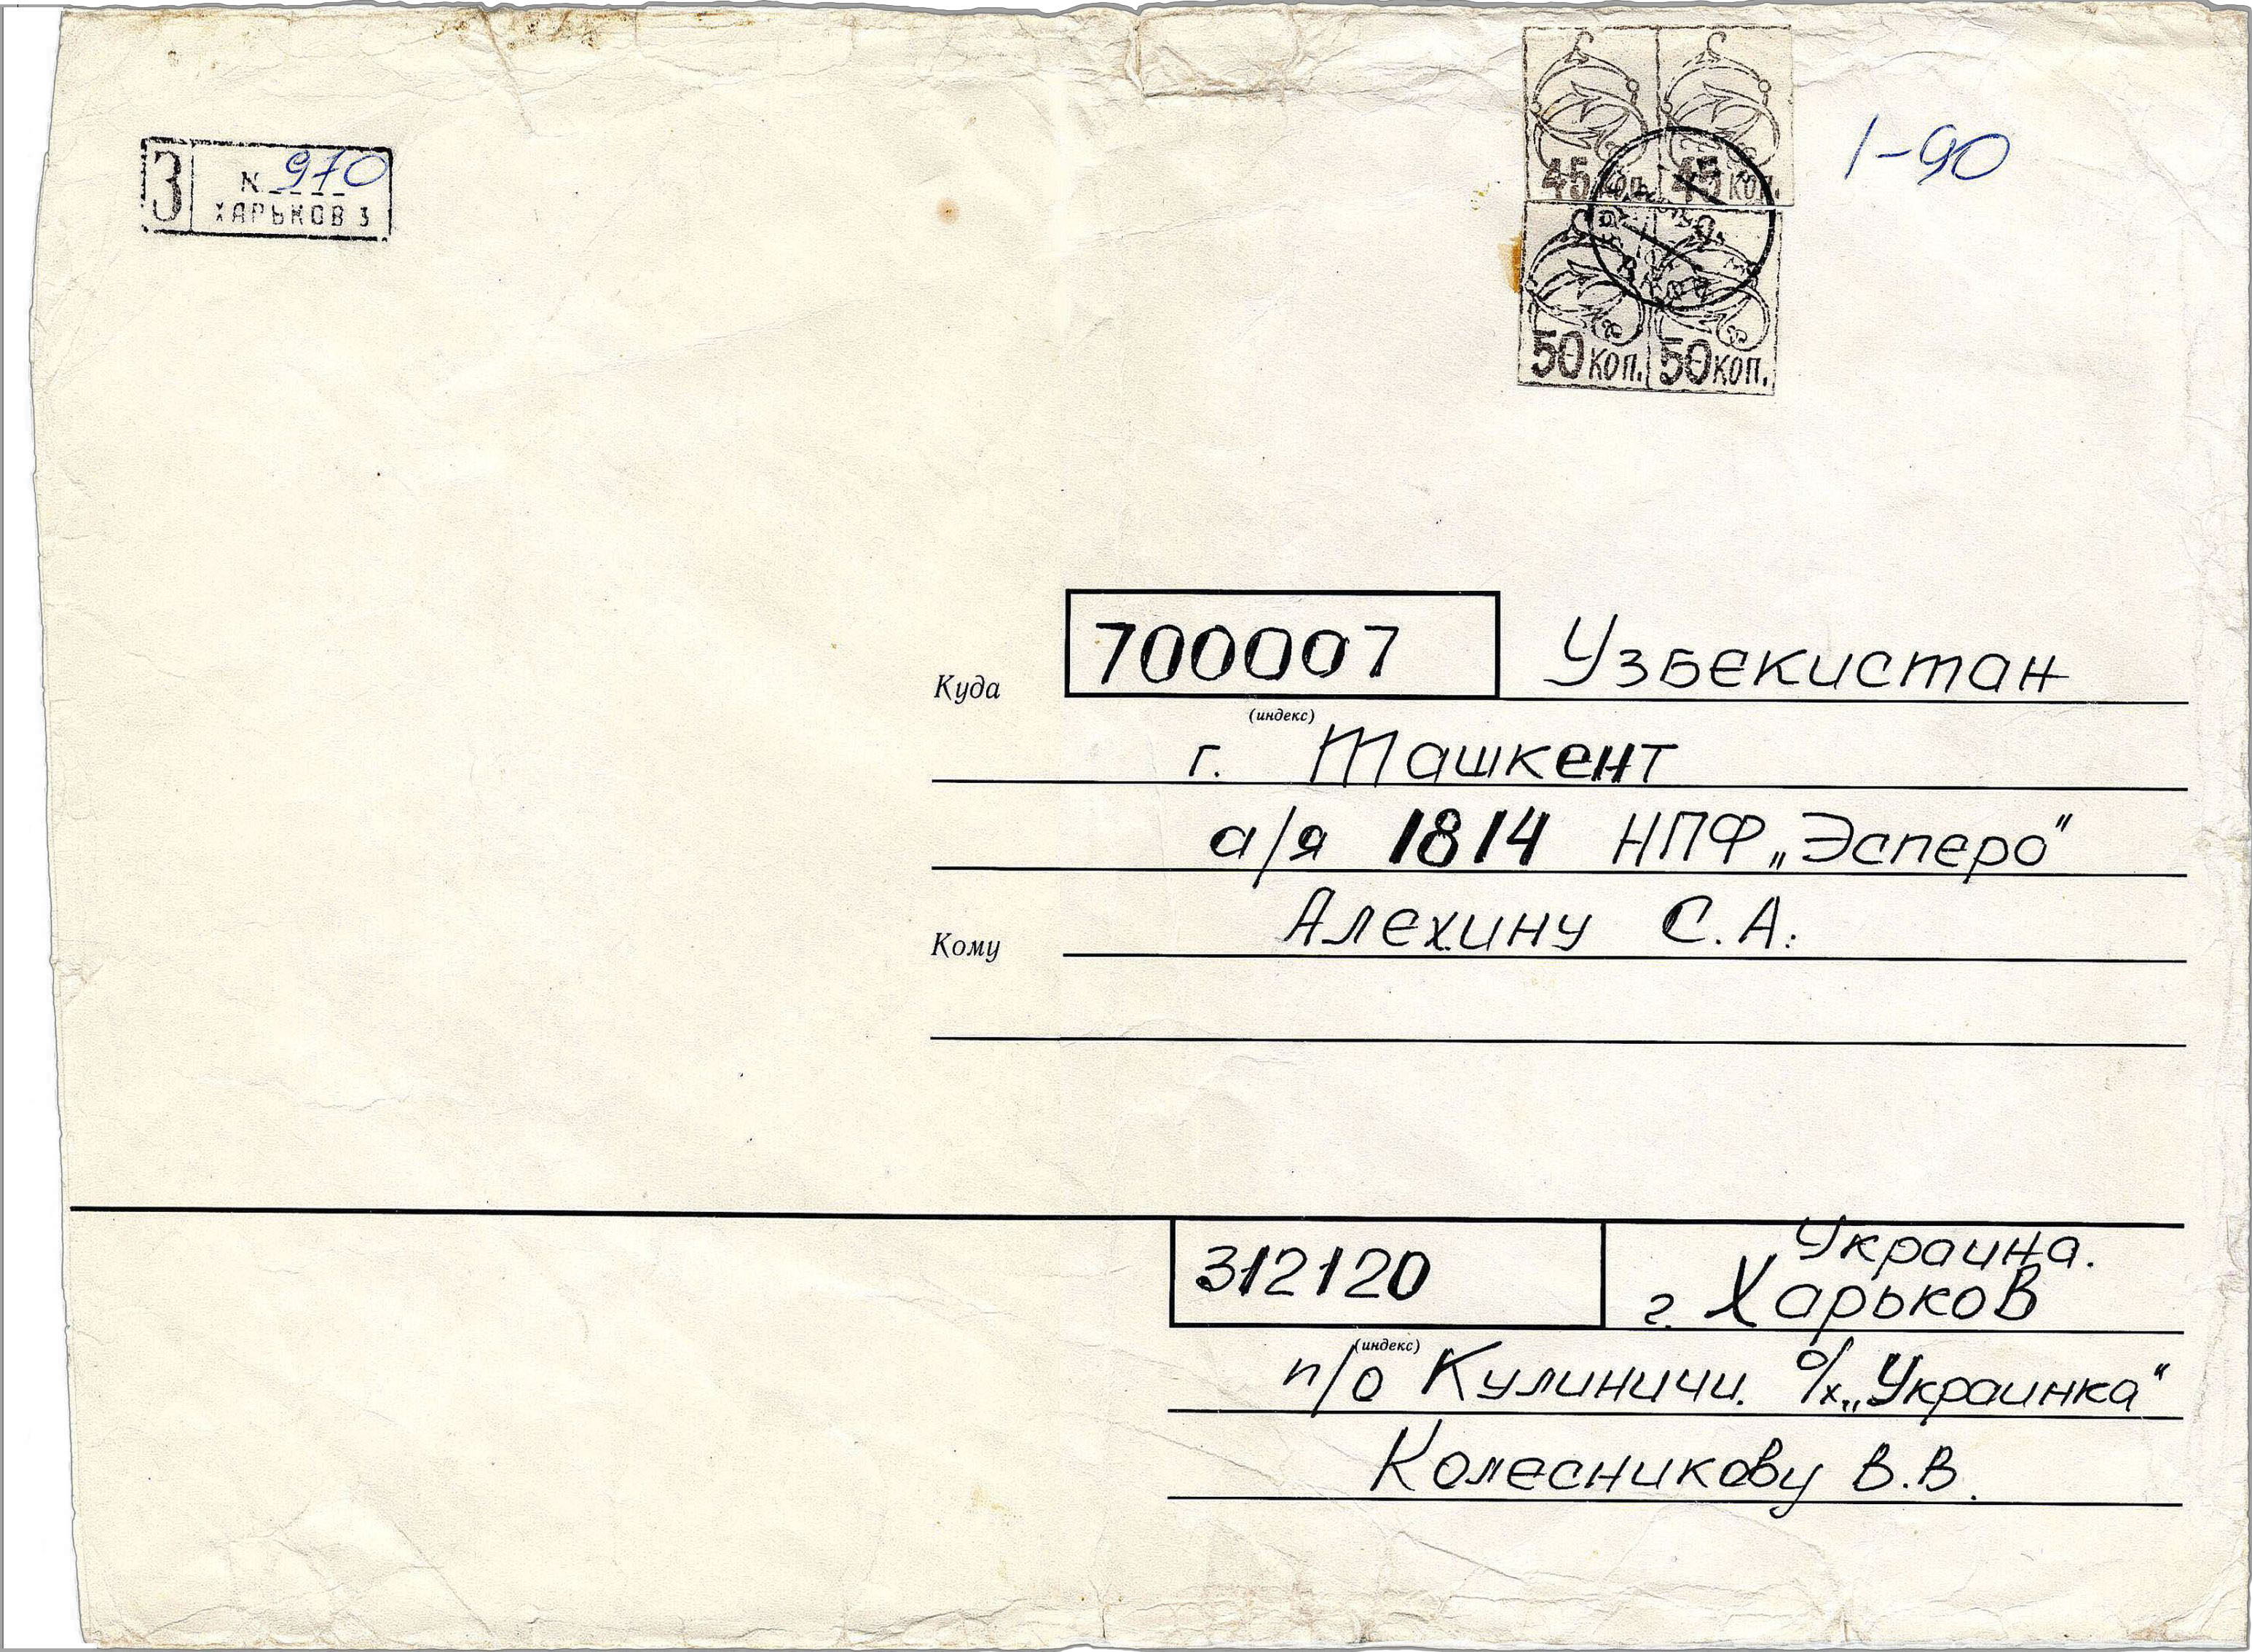 З
N 970
ХАРЬКОВ 3
45 коп. 45 коп.
50 коп. 50 коп.
1-90
Куда 700007 Узбекистан
(индекс)
г. Ташкент
а/я 1814 НПФ „Эсперо"
Кому Алехину С.А.
312120 Украина.
г. Харьков
(индекс)
п/о Кулиничи. о/х „Украинка"
Колесникову В.В.